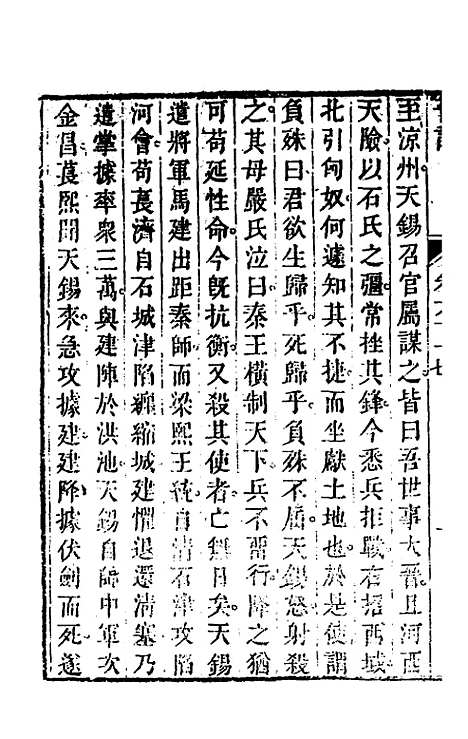 至涼州天錫召官屬謀之皆曰吾世事大晉且河西
天險以石氏之彊常挫其鋒今悉兵拒戰右招西域
北引匈奴何遽知其不捷而坐獻土地也於是使謂
負殊曰君欲生歸乎死歸乎負殊不屈天錫怒射殺
之其母嚴氏泣曰秦王橫制天下兵不習行降之猶
可苟延性命今旣抗衡又殺其使者亡無日矣天錫
遣將軍馬建出距秦師而梁熙王統自清石津攻陷
河會苟萇濟自石城津陷纏縮城建懼退還清塞乃
遣掌據率衆三萬與建陣於洪池天錫自帥中軍次
金昌萇熙聞天錫來急攻據建建降據伏劍而死遂